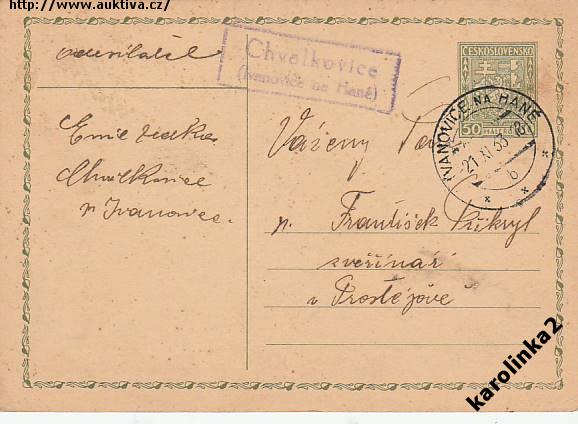 http://www.auktiva.cz/
odesílatel
Chvalkovice
(Ivanovice na Hané)
ČESKOSLOVENSKO
50
IVANOVICE NA HANÉ
21 XI 33
b
Chvalkovice
Vážený Pan
p. František Přikryl
zvěřinář
v Prostějově
karolinka2